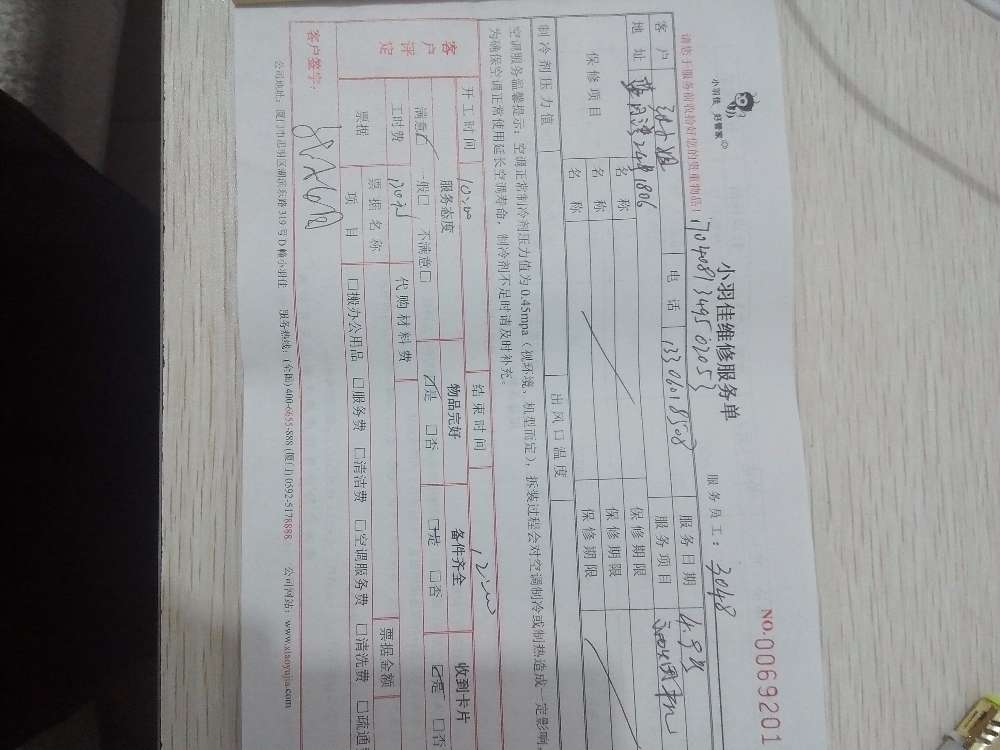 小羽佳 好管家
小羽佳维修服务单
NO.00069201
请您于服务前收拾好您的贵重物品！
1704081349502053
服务员工：3048
客户
电话 13306018508
服务日期
地址 1806
服务项目
保修项目
名称 保修期限
名称 保修期限
名称 保修期限
制冷剂压力值 出风口温度
空调服务温馨提示：空调正常制冷剂压力值为0.45mpa（视环境，机型而定），拆装过程会对空调制冷或制热造成一定影响，
为确保空调正常使用延长空调寿命，制冷剂不足时请及时补充。
开工时间 10:00 结束时间 12:00
客户评定
服务态度 物品完好 备件齐全 收到卡片
满意□ 一般□ 不满意□ □是 □否 □是 □否 □是 □否
工时费 代购材料费
票据 票据名称 票据金额
项目 □搬办公用品 □服务费 □清洁费 □空调服务费 □清洗费 □疏通
客户签字：
公司地址：厦门市思明区湖滨东路319号D幢小羽佳 服务热线：(全国) 400-6655-888 (厦门) 0592-5178888 公司网站：www.xiaoyujia.com